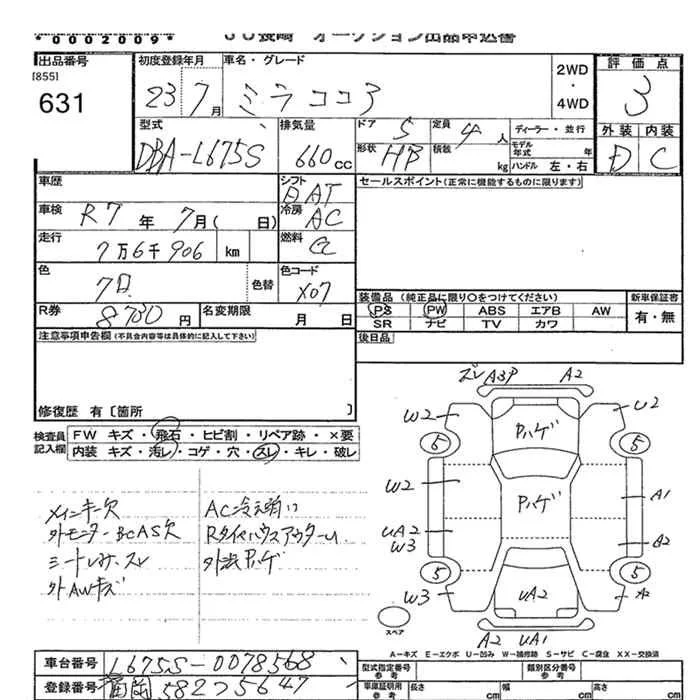 *0002009*
JU長崎 オークション出品申込書
出品番号 [855] 631
初度登録年月 23 7月
車名・グレード ミラココア
2WD・4WD
評価点 3
外装 D 内装 C
型式 DBA-L675S
排気量 660cc
ドア 5 定員 4人
形状 HB 積載 kg
ディーラー・並行
モデル年式 年
ハンドル 左・右
車歴
シフト AT
セールスポイント(正常に機能するものに限ります)
車検 R7年 7月( 日)
冷房 AC
走行 7万6千906 km
燃料
色 色替
色コード X07
装備品(純正品に限り○をつけてください)
PS PW ABS エアB AW
SR ナビ TV カワ
新車保証書 有・無
R券 8730円
名変期限 月 日
後日品
注意事項申告欄(不具合内容等は具体的に記入して下さい)
修復歴 有〔箇所 〕
検査員記入欄
FW キズ・飛石・ヒビ割・リペア跡・×要
内装 キズ・汚レ・コゲ・穴・スレ・キレ・破レ
メインキー欠
外モニターBCAS欠
シートシミ・スレ
外AWキズ
AC冷え弱い
RタイヤハウスアウターU
外装Pハゲ
ズレ A3P A2
W2 Pハゲ U2
5 5
W2 Pハゲ A1
UA2 W3 A2
5 5
W3 UA2 A2
スペア
A2 UA1
A-キズ E-エクボ U-凹み W-補修跡 S-サビ C-腐食 XX-交換済
車台番号 L675S-0078568
登録番号 582 5647
型式指定番号 参考 類別区分番号 参考
車庫証明用 参考 長さ cm 幅 cm 高さ cm